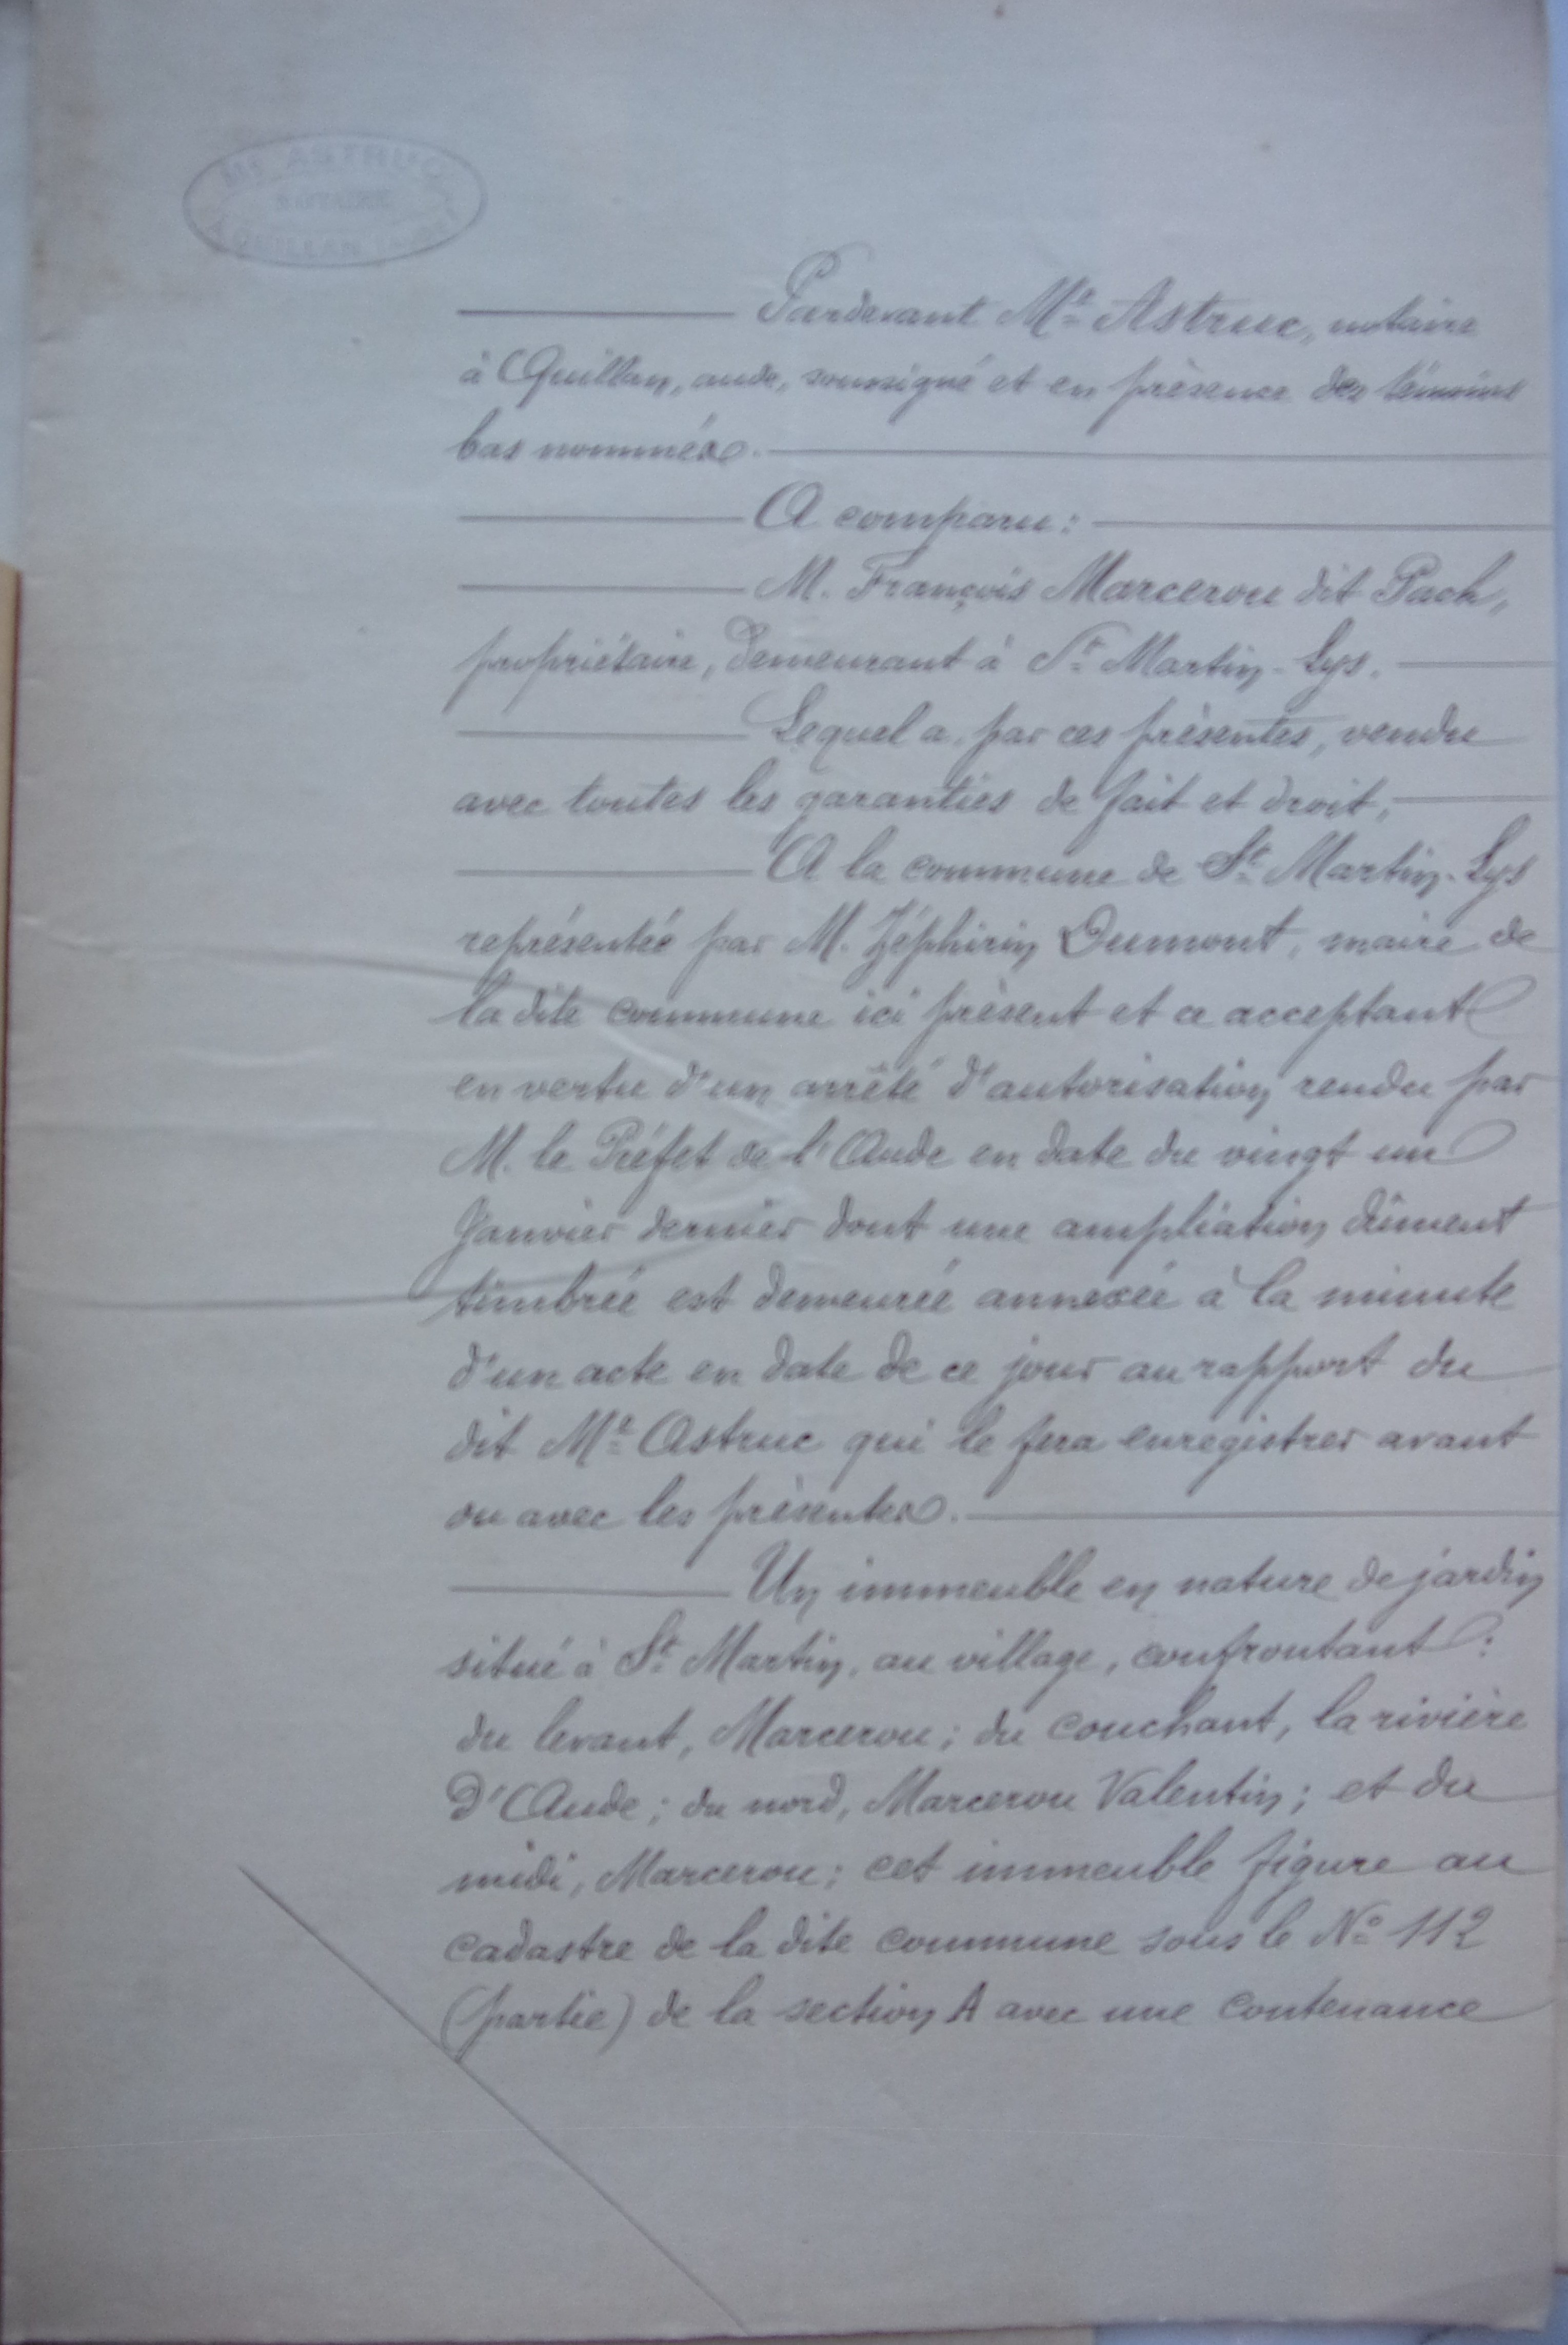 Me ASTRUC
NOTAIRE
A QUILLAN (AUDE)
Pardevant Me Astruc, notaire
à Quillan, aude, soussigné et en présence des témoins
bas nommés.
A comparu:
M. François Marcerou dit Pach,
propriétaire, demeurant à St Martin-Lys.
Lequel a, par ces présentes, vendu
avec toutes les garanties de fait et droit,
A la commune de St Martin-Lys
représentée par M. Zéphirin Dumont, maire de
la dite commune ici présent et ce acceptant
en vertu d'un arrêté d'autorisation rendu par
M. le Préfet de l'Aude en date du vingt un
Janvier dernier dont une ampliation dûment
timbrée est demeurée annexée à la minute
d'un acte en date de ce jour au rapport du
dit Me Astruc qui le fera enregistrer avant
ou avec les présentes.
Un immeuble en nature de jardin
situé à St Martin, au village, confrontant:
du levant, Marcerou; du couchant, la rivière
D'Aude; du nord, Marcerou Valentin; et du
midi, Marcerou; cet immeuble figure au
cadastre de la dite commune sous le No 112
(partie) de la section A avec une contenance